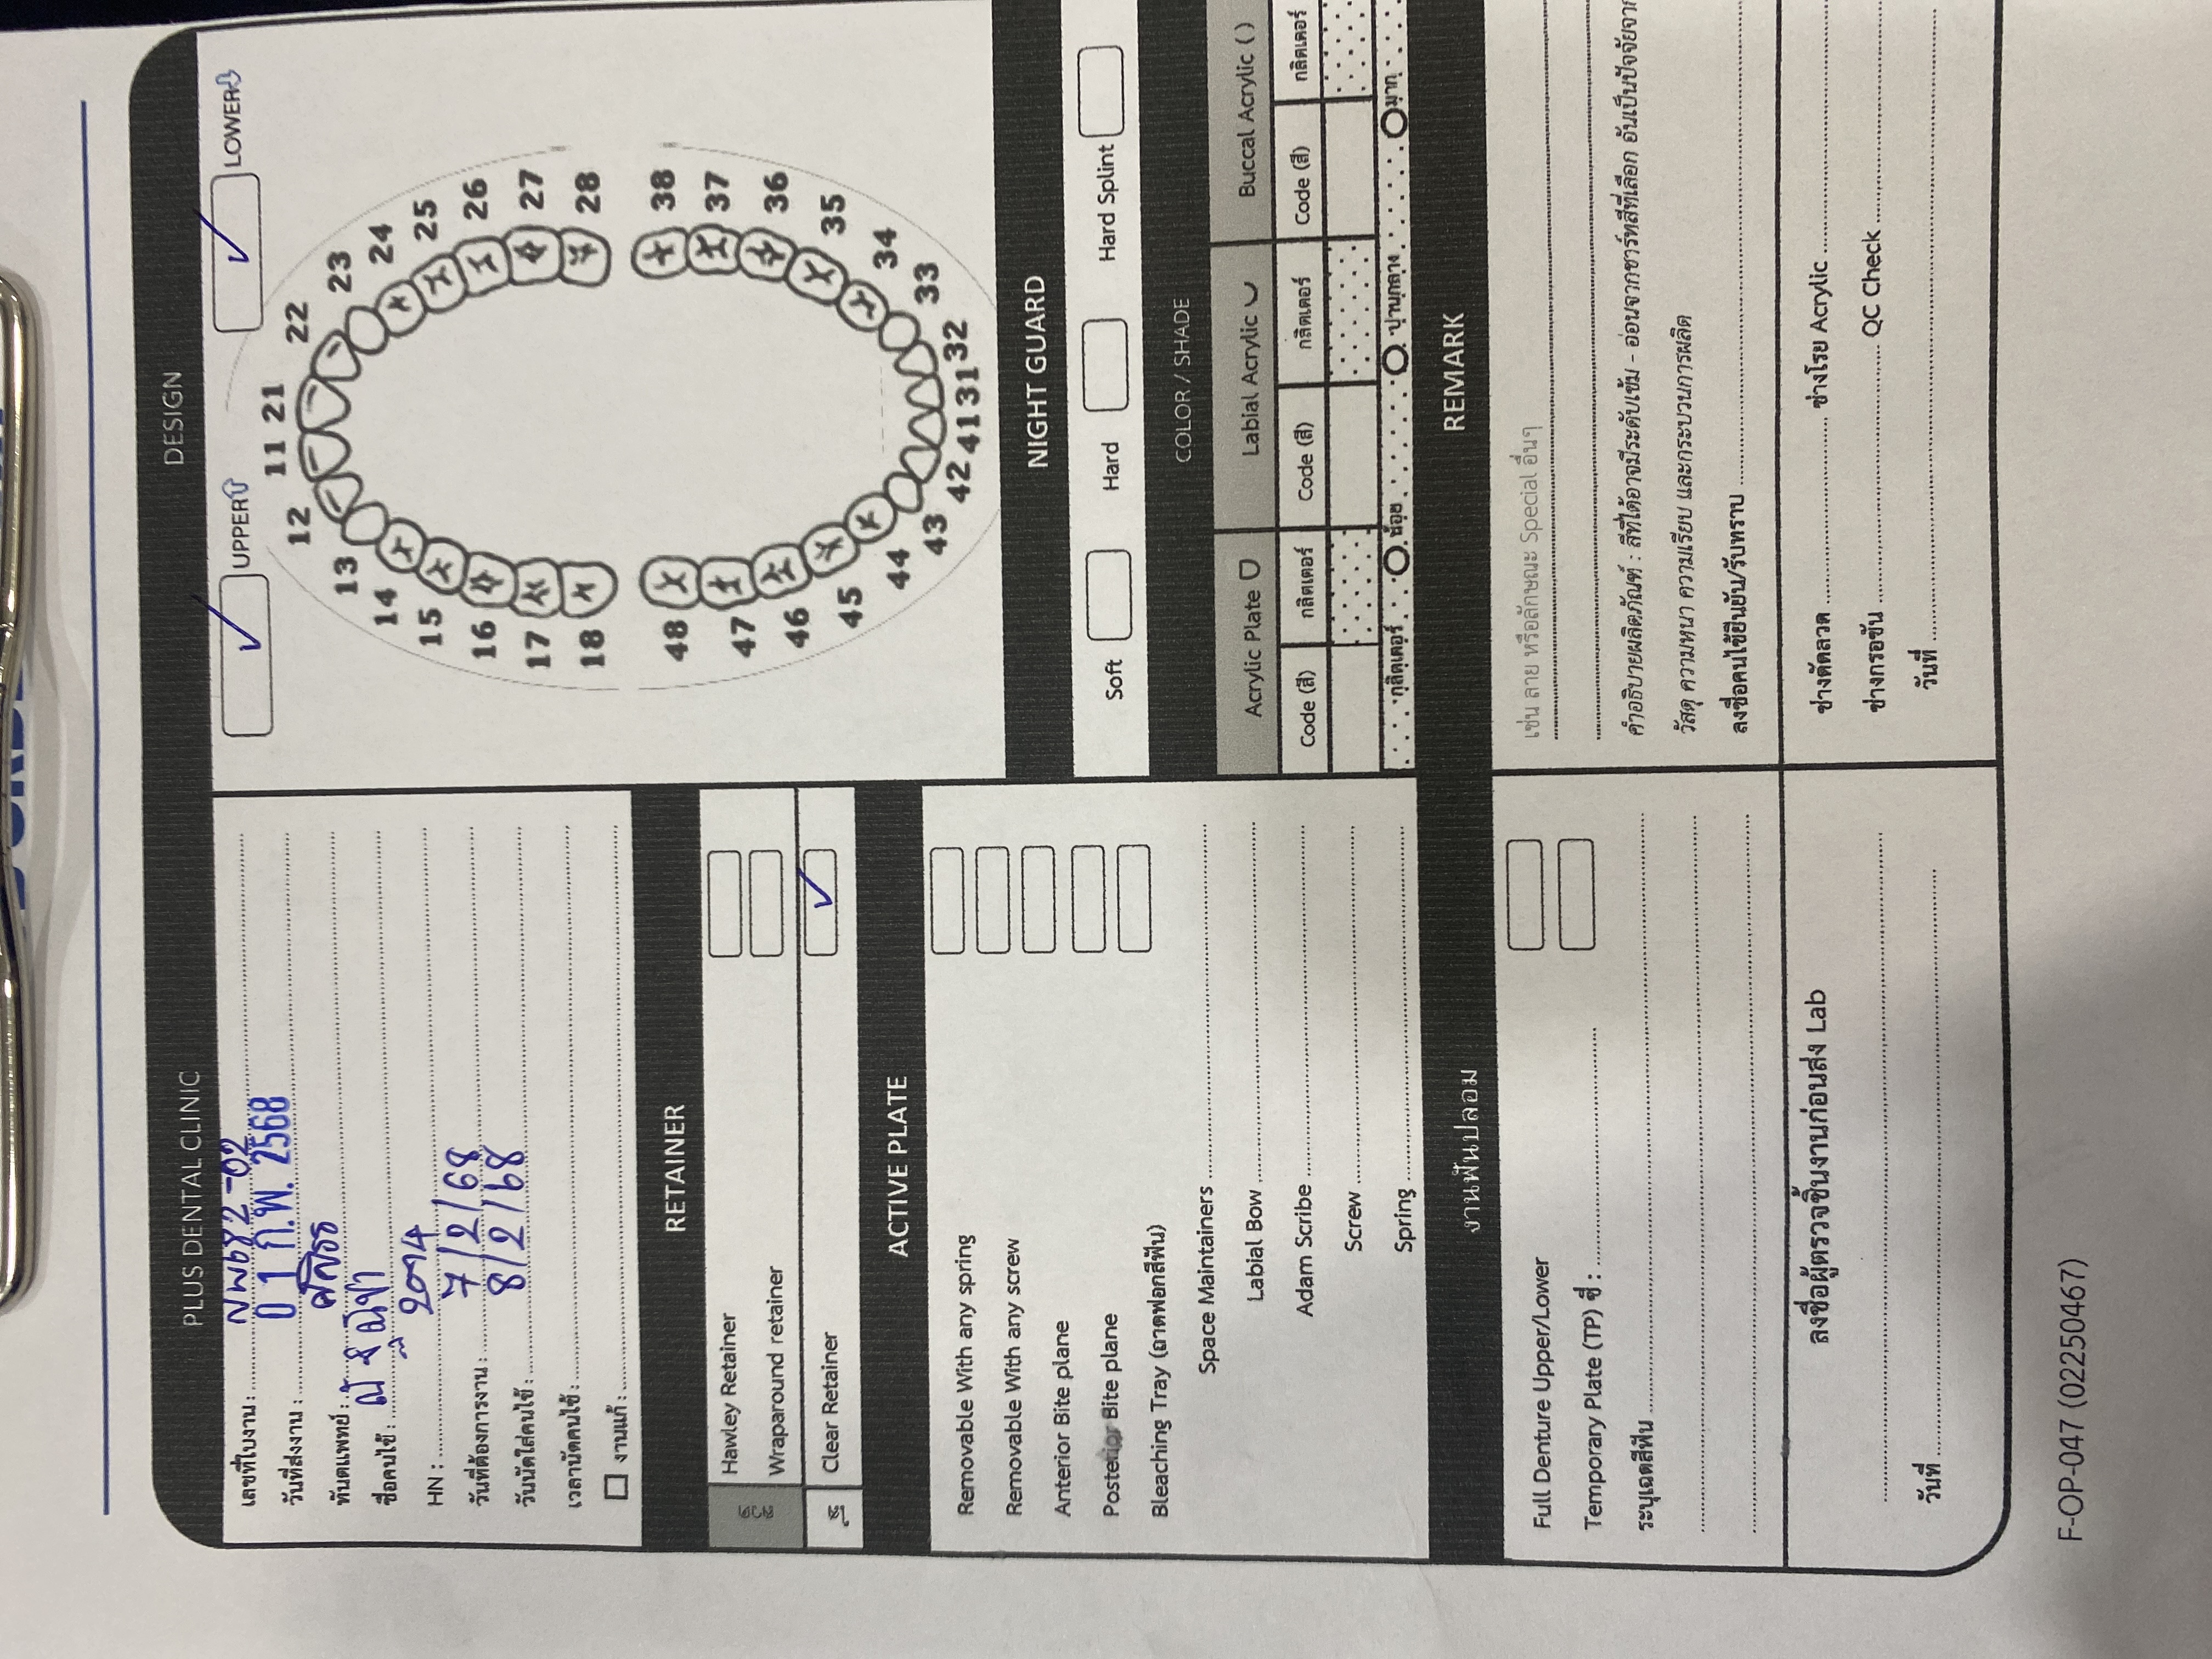 PLUS DENTAL CLINIC
เลขที่ใบงาน :
วันที่ส่งงาน : 0 1 ก.พ. 2568
ทันตแพทย์ :
ชื่อคนไข้ :
HN :
วันที่ต้องการงาน : 7/2/68
วันนัดใส่คนไข้ : 8/2/68
เวลานัดคนไข้ :
งานแก้ :
RETAINER
Hawley Retainer
Wraparound retainer
Clear Retainer
ACTIVE PLATE
Removable With any spring
Removable With any screw
Anterior Bite plane
Posterior Bite plane
Bleaching Tray (ถาดฟอกสีฟัน)
Space Maintainers
Labial Bow
Adam Scribe
Screw
Spring
งานฟันปลอม
Full Denture Upper/Lower
Temporary Plate (TP) ซี่ :
ระบุเฉดสีฟัน
ลงชื่อผู้ตรวจชิ้นงานก่อนส่ง Lab
วันที่
DESIGN
UPPER LOWER
11 21
12 22
13 23
14 24
15 25
16 26
17 27
18 28
48 38
47 37
46 36
45 35
44 34
43 33
42 41 31 32
NIGHT GUARD
Soft Hard Hard Splint
COLOR / SHADE
Acrylic Plate Labial Acrylic Buccal Acrylic ( )
Code (สี) กลิตเตอร์ Code (สี) กลิตเตอร์ Code (สี) กลิตเตอร์
กลิตเตอร์ น้อย ปานกลาง มาก
REMARK
เช่น ลาย หรือลักษณะ Special อื่นๆ
คำอธิบายผลิตภัณฑ์ : สีที่ได้อาจมีระดับเข้ม - อ่อนจากชาร์ทสีที่เลือก อันเป็นปัจจัยจาก
วัสดุ ความหนา ความเรียบ และกระบวนการผลิต
ลงชื่อคนไข้ยืนยัน/รับทราบ
ช่างดัดลวด ช่างโรย Acrylic
ช่างกรอขัน QC Check
วันที่
F-OP-047 (02250467)